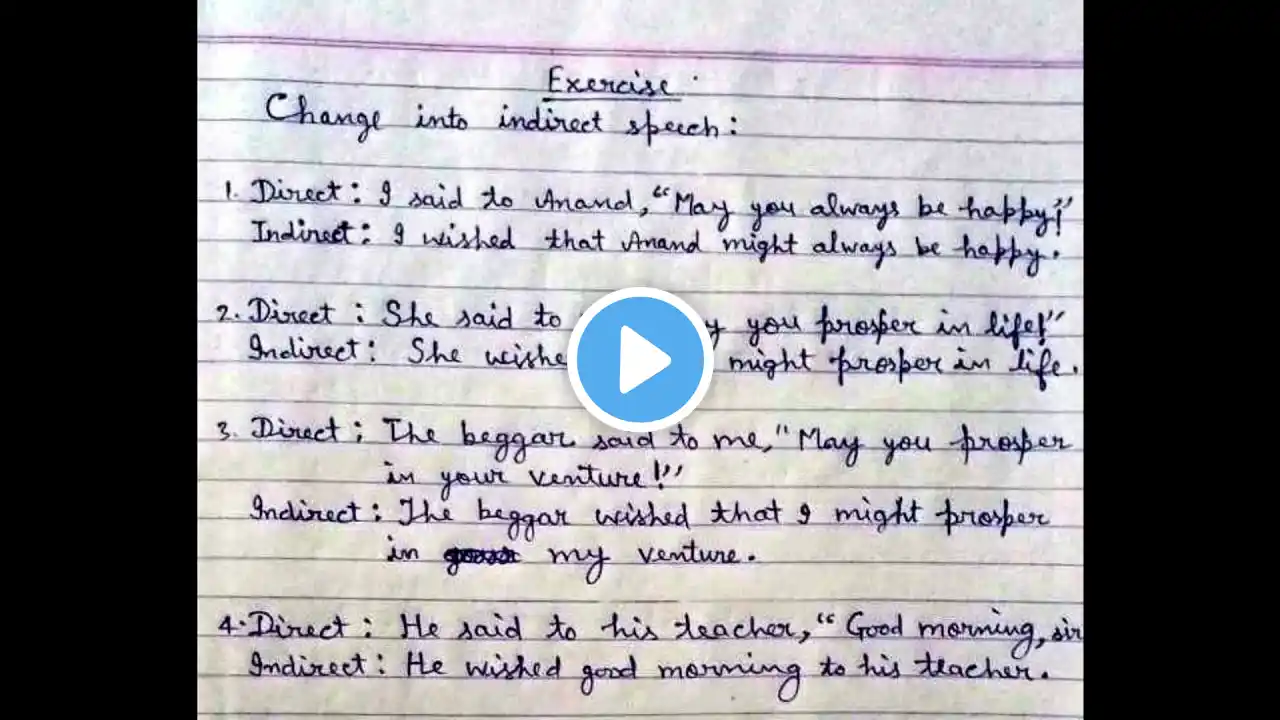 Exercise
Change into indirect speech:
1. Direct: I said to Anand, "May you always be happy!"
Indirect: I wished that Anand might always be happy.
2. Direct: She said to you prosper in life!"
Indirect: She might prosper in life.
3. Direct: The beggar said to me, "May you prosper
in your venture!"
Indirect: The beggar wished that I might prosper
in my venture.
4. Direct: He said to his teacher, "Good morning, sir
Indirect: He wished good morning to his teacher.